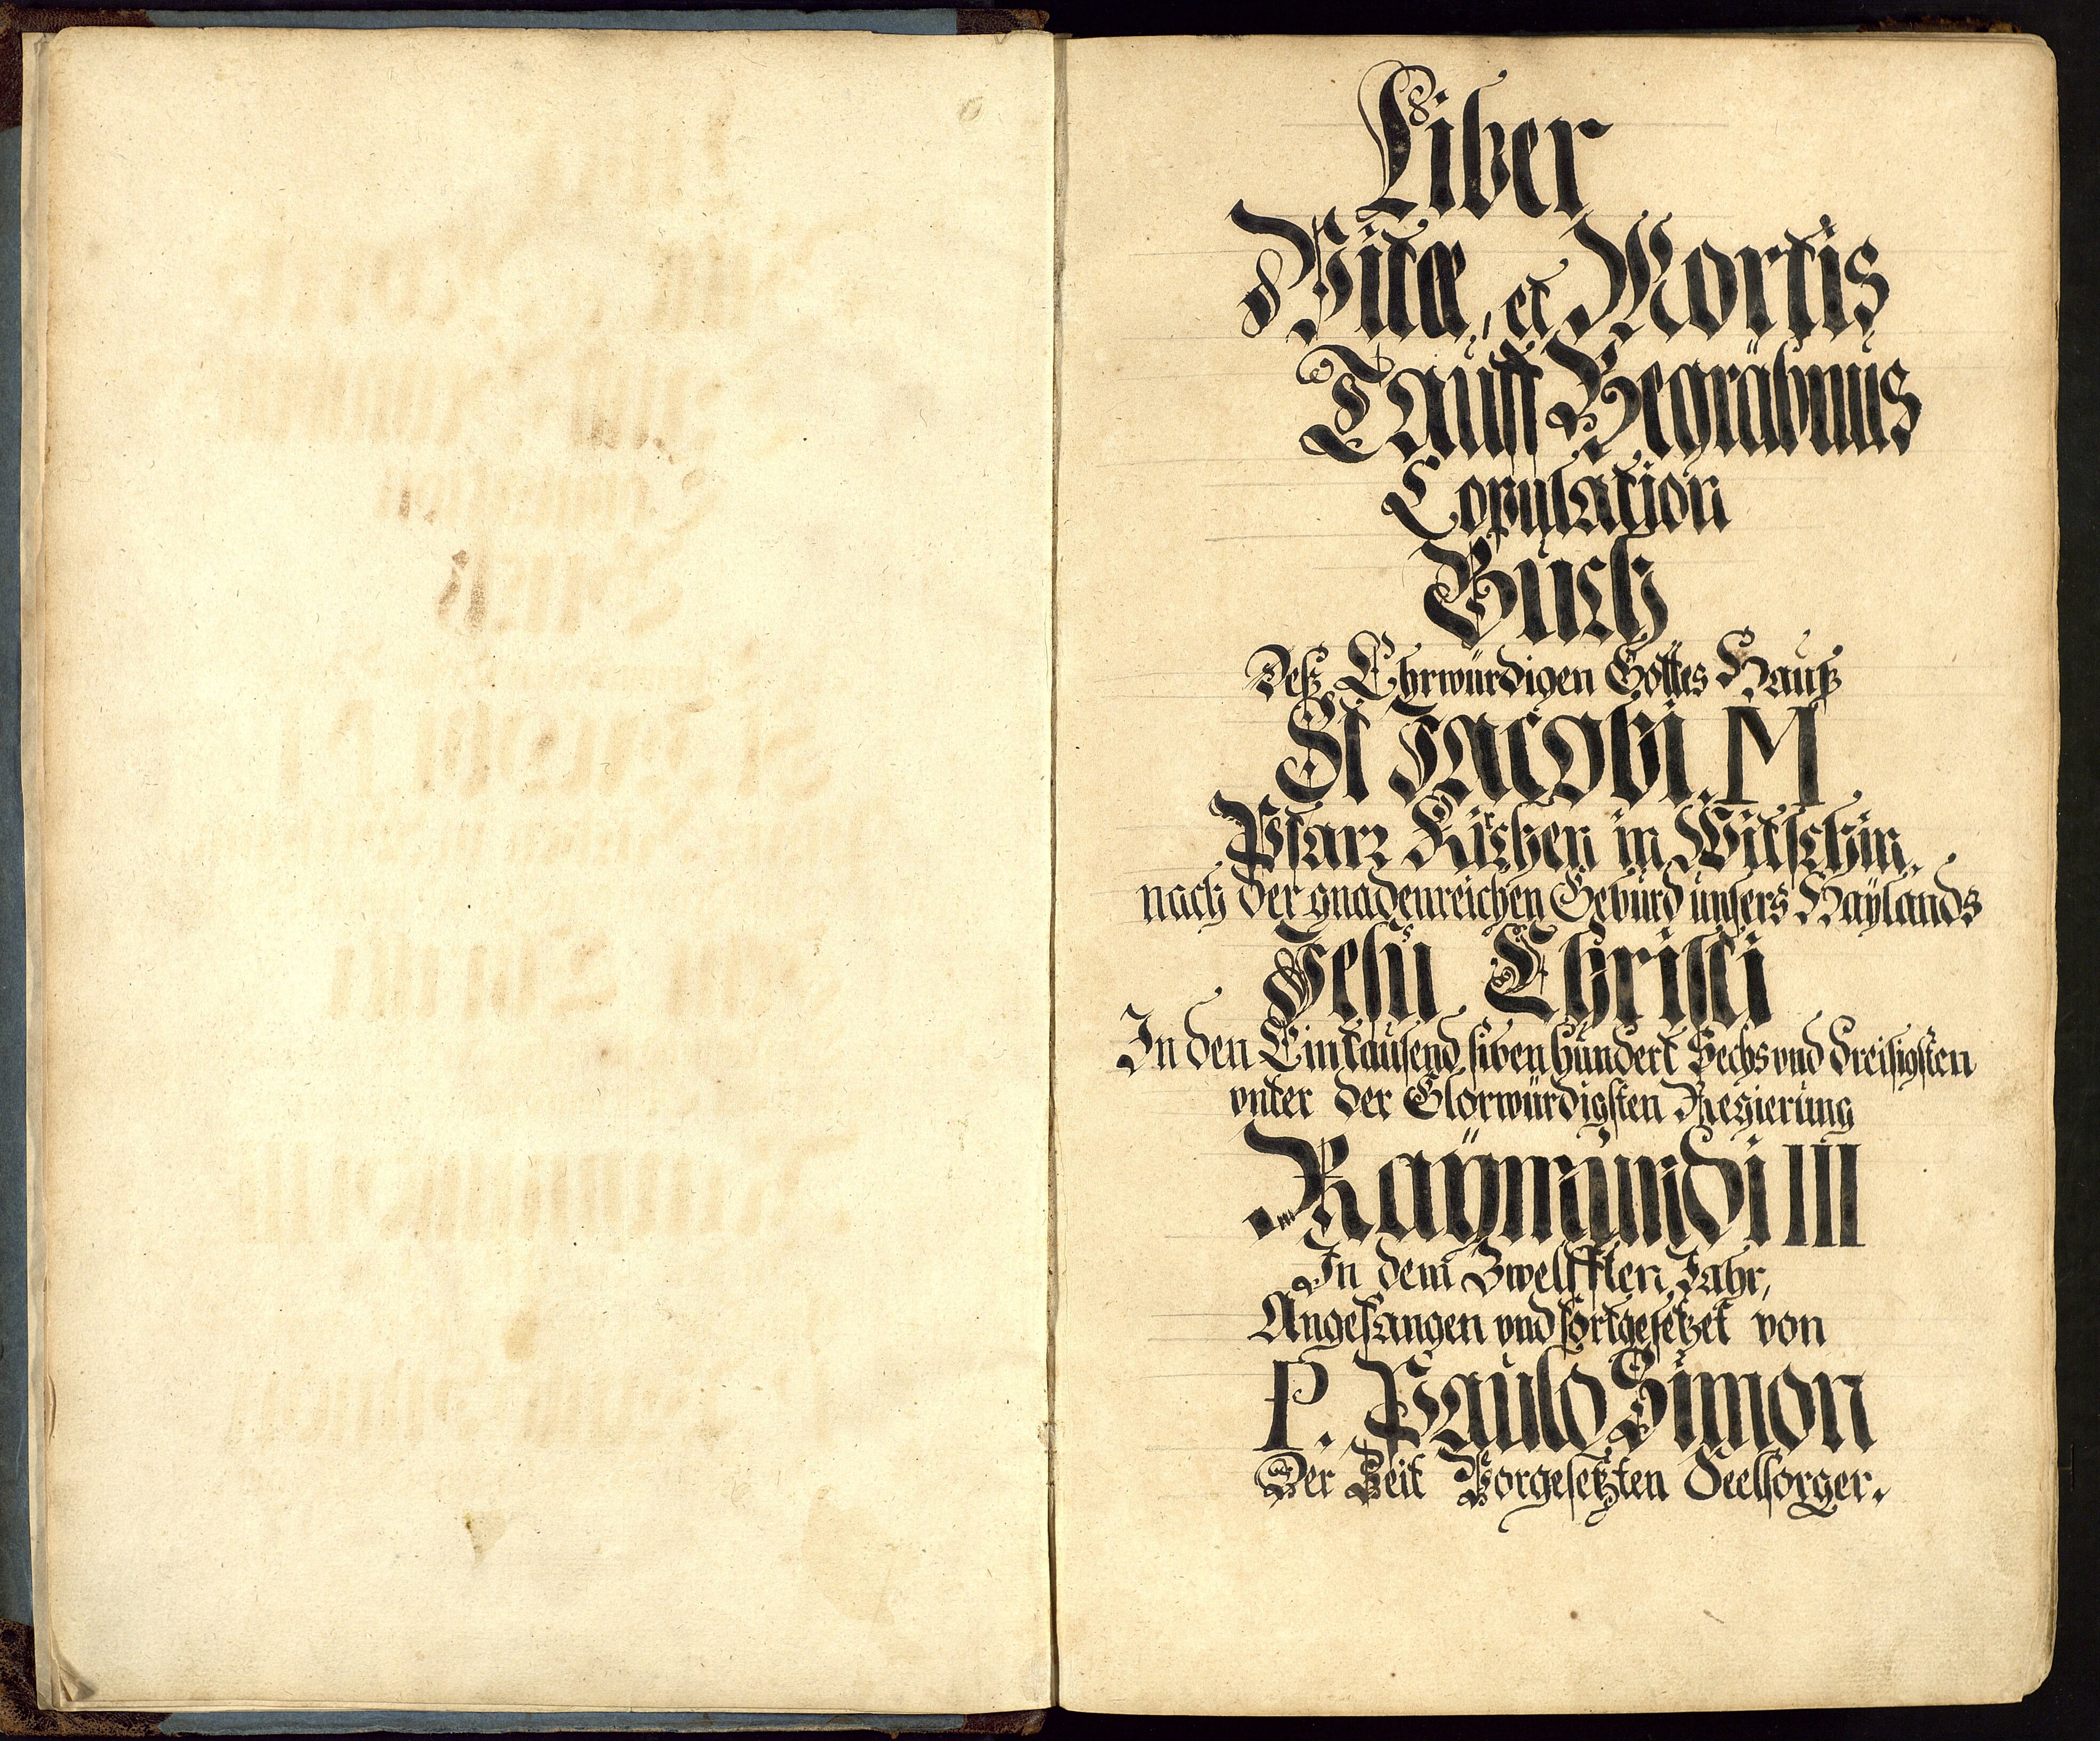 Liber
Vitæ, et Mortis
Tauff Begräbnus
Copulation
Buch
Deß Ehrwürdigen Gottes Hauß
St Jacobi. M
Pfarr Kirchen in Witschin.
nach der gnadenreichen Geburd unsers Haÿlands
Jesu Christi
In den Eintausend siben hundert Sechs vnd dreisigsten
vnter der Glorwürdigsten Regierung
Raÿmundi III
In dem Zwelfften Jahr,
Angefangen vnd fortgesetzet von
P. Paulo Simon
Der Zeit Vorgesetzten Seelsorger.